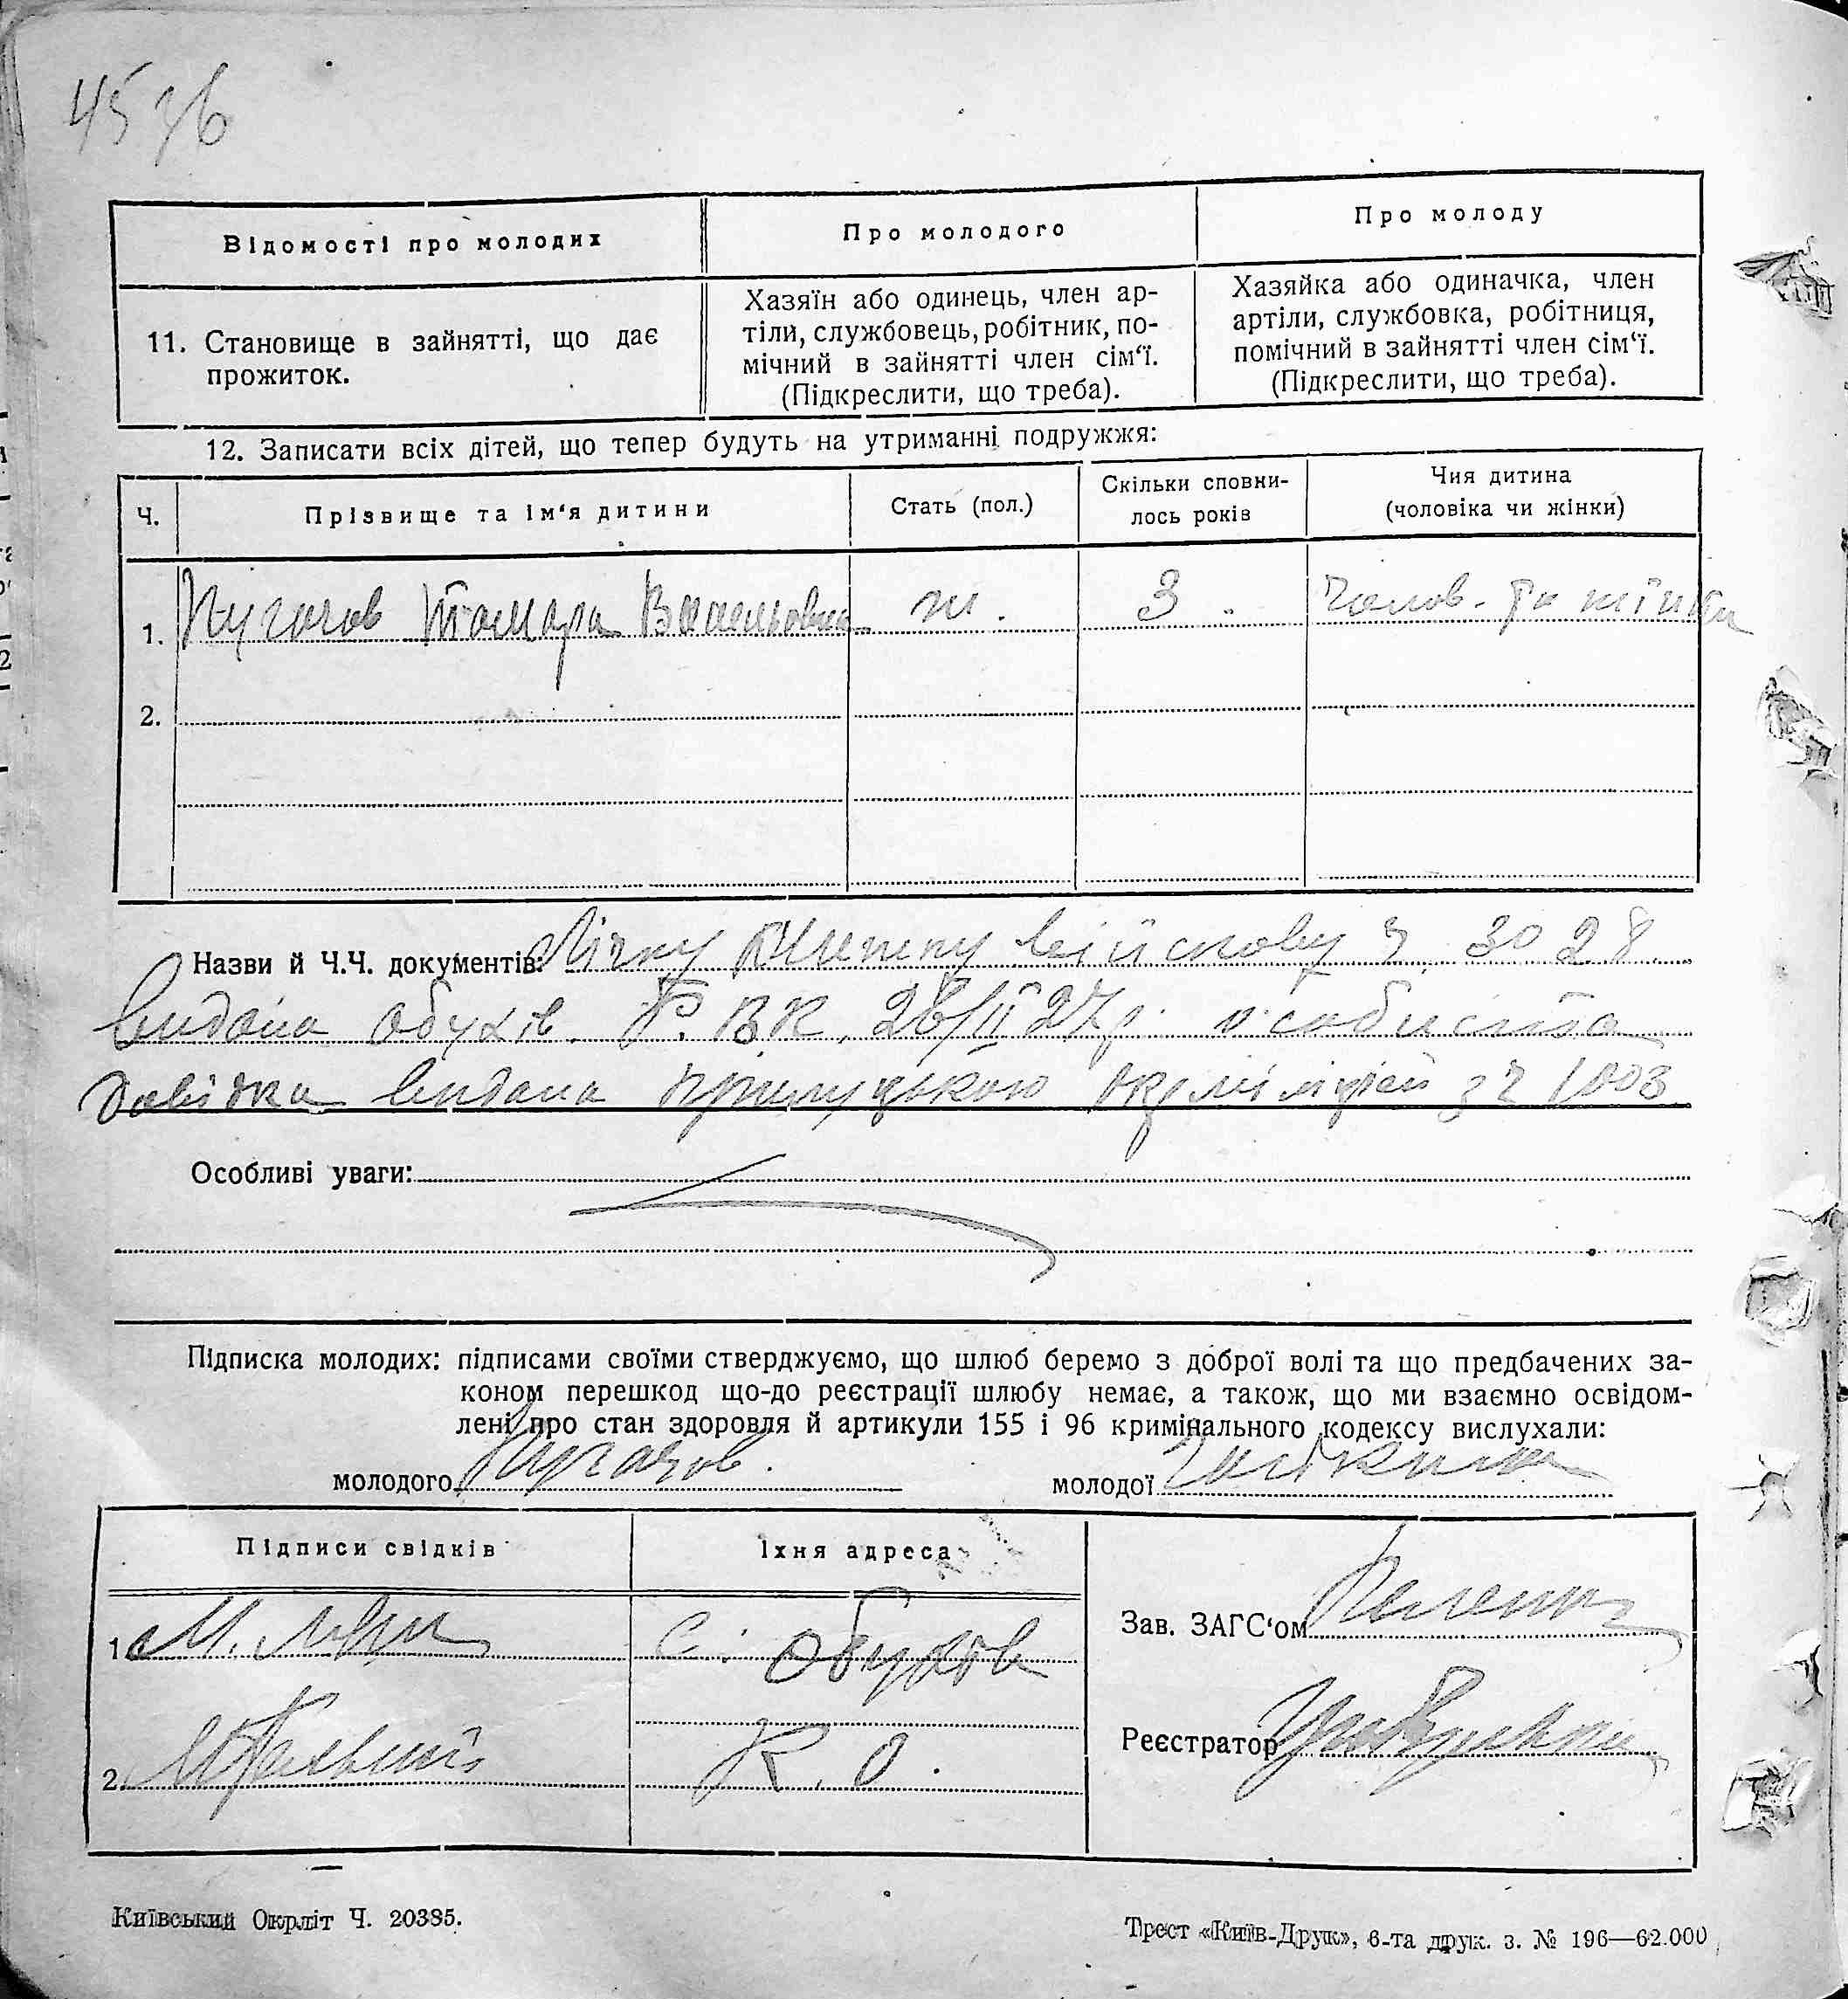 45зв
Відомості про молодих
Про молодого
Про молоду
11. Становище в зайнятті, що дає
прожиток.
Хазяїн або одинець, член ар-
тіли, службовець, робітник, по-
мічний в зайнятті член сім‘ї.
(Підкреслити, що треба).
Хазяйка або одиначка, член
артіли, службовка, робітниця,
помічний в зайнятті член сім‘ї.
(Підкреслити, що треба).
12. Записати всіх дітей, що тепер будуть на утриманні подружжя:
Ч.
Прізвище та ім‘я дитини
Стать (пол.)
Скільки сповни-
лось років
Чия дитина
(чоловіка чи жінки)
1. Пугачов Тамара Васильовна ж. 3 Чолов. та жінки
2.
Назви й Ч.Ч. документів: війскову ч. 3028
видана Обухів. Р.В.К. 26/II 27 р. особиста
довідка видана Прилуцькою окрміліцієй з ч 1003
Особливі уваги:
Підписка молодих: підписами своїми стверджуємо, що шлюб беремо з доброї волі та що предбачених за-
коном перешкод що-до реєстрації шлюбу немає, а також, що ми взаємно освідом-
лені про стан здоровля й артикули 155 і 96 кримінального кодексу вислухали:
молодого Пугачов.
молодої
Підписи свідків
Їхня адреса
1. М.
с. Обухів
2.
К. О.
Зав. ЗАГС‘ом
Реєстратор
Київський Окрліт Ч. 20385.
Трест «Київ-Друк», 6-та друк. з. № 196—62.000